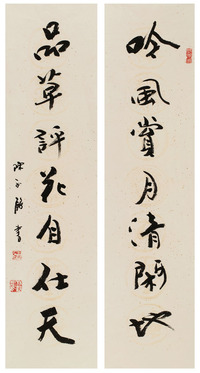 吟風賞月清閑地
品草評花自在天